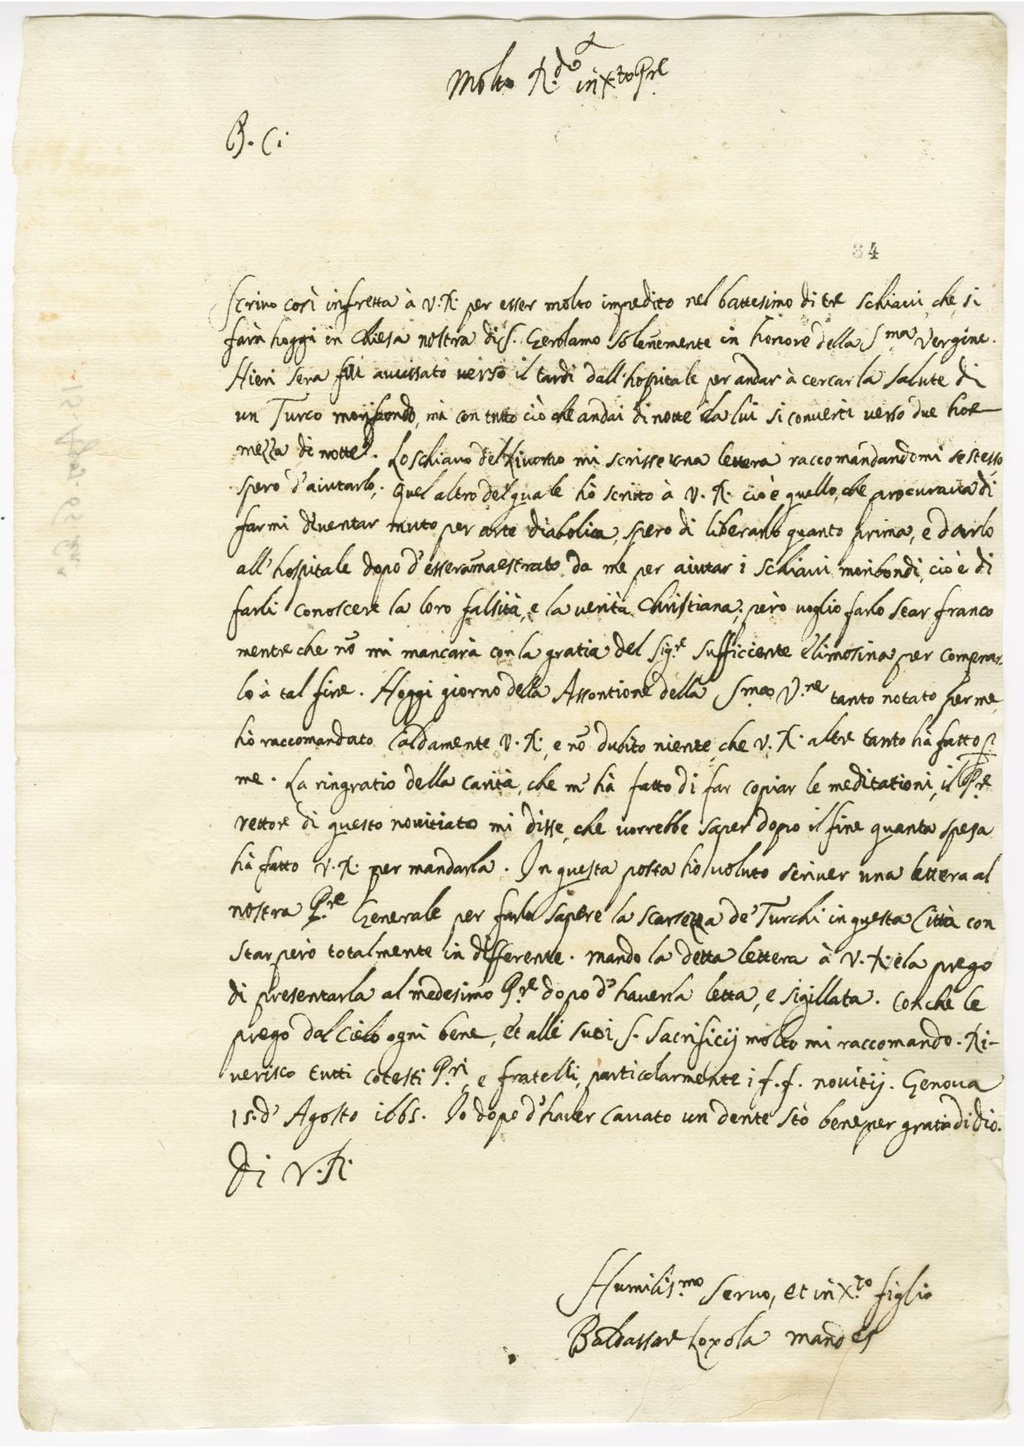 Molto R.do in X.to P.re
P. C.
34
Scrivo così infretta à V.R. per esser molto impedito nel battesimo di tre schiavi, che si
farà hoggi in Chiesa nostra di S. Gerolamo solenemente in honore della S.ma Vergine.
Hieri sera fui avissato verso il tardi dall'hospitale per andar à cercar la salute di
un Turco moribondo, mà con tutto ciò che andai di notte da lui si convertì verso due hore
mezza di notte. Lo schiavo del Livorno mi scrisse una lettera raccomandandomi se stesso
spero d'aiutarlo. Quel altro del quale hò scritto à V.R. cioè quello, che procurava di
farmi diventar muto per arte diabolica, spero di liberarlo quanto prima, e darlo
all'hospitale dopo d'esser amaestrato da me per aiutar i schiavi moribondi, cioè di
farli conoscere la loro falsità, e la verità Christiana; però voglio farlo star franco
mentre che nõ mi mancarà con la gratia del Sig.re sufficiente elimosina per comprar-
lo à tal fine. Hoggi giorno della Assontione della S.ma V.ne tanto notato per me,
hò raccomandato caldamente V.R. e nõ dubito niente, che V.R. altre tanto hà fatto p
me. La ringratio della carità, che m'hà fatto di far copiar le meditationi, il P.re
rettore di questo novitiato mi disse, che vorrebbe saper dopo il fine quanta spesa
hà fatto V.R. per mandarla. In questa posta ho voluto scriver una lettera al
nostro P.re Generale per farli sapere la scarsezza de' Turchi in questa Città con
star però totalmente indifferente. mando la detta lettera à V.R. e la prego
di presentarla al medesimo P.re dopo d'haverla letta, e sigillata. Con che le
prego dal Cielo ogni bene, et alli suoi S. Sacrificij molto mi raccomando. Ri-
verisco tutti cotesti P.ri, e fratelli, particolarmente i f.f. novitij. Genova
15 d' Agosto 1665. Io dopo d'haver cavato un dente stò bene per gratia di dio.
Di V.R.
Humiliss.mo Servo, et in X.to figlio
Baldassar Loyola Mandes